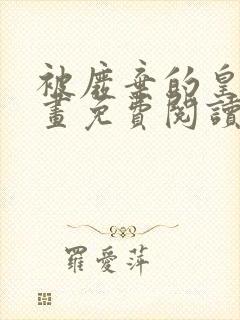 被廢棄的皇
畫免費閱讀
羅愛萍